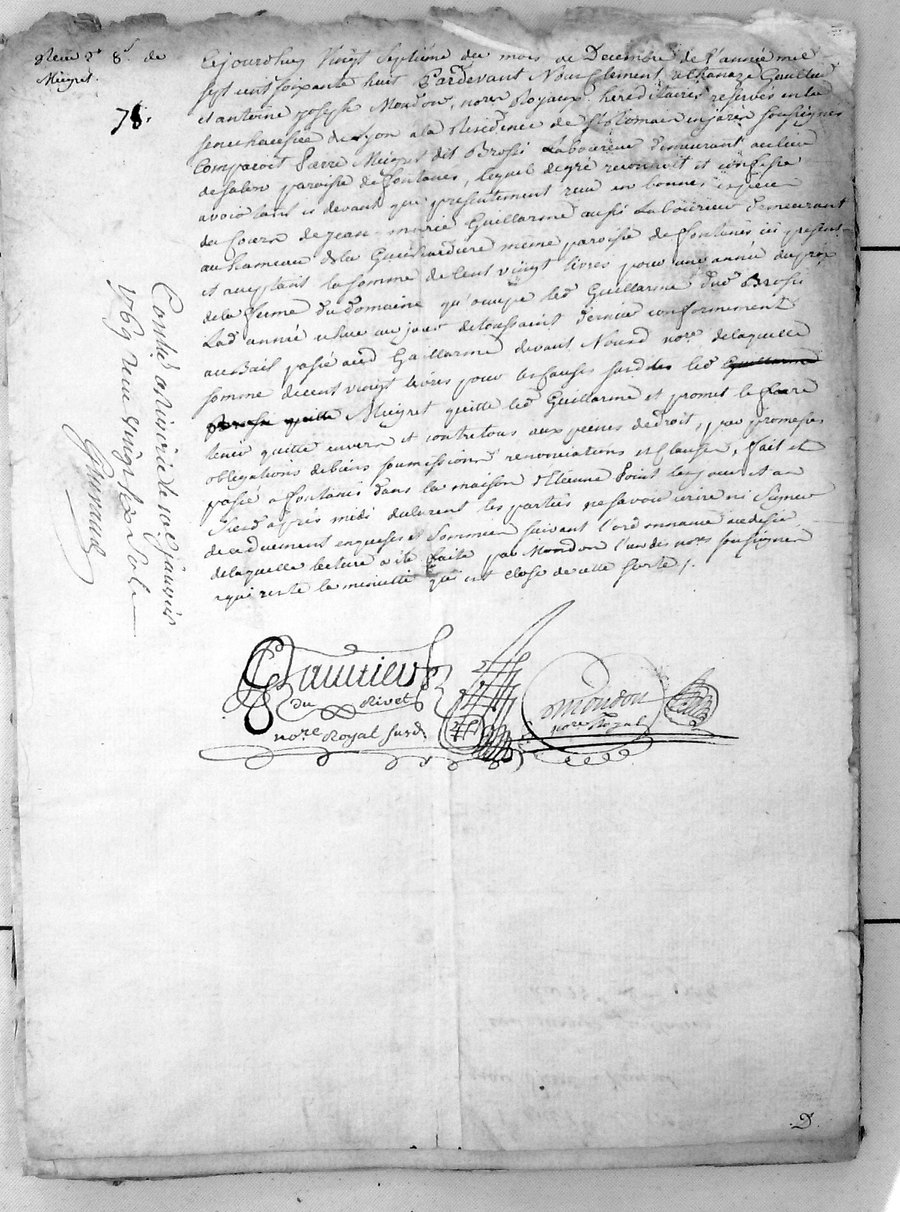 de
Meigret.
78.
Cejourdhuy Vingt Septième du mois de Decembre de l'année mil
sept cent soixante huit Pardevant Nous Clement
et antoine Joseph Mondon, nores Royaux héréditaires reservés en la
senechaussée de Lyon a la Residence de St Romain en jarez soussignés
Comparoit Pierre Meigret dit Brossi Laboureur demeurant au lieu
de salem paroisse de fontanes, lequel de gré reconnoit et confesse
avoir tant cy devant que presentement reçu en bonnes espèces
du cours de jean-marie Guillarme aussi Laboureur demeurant
au hameau de la même paroisse de fontanès ici present
et acceptant la somme de Cent vingt livres pour une année du prix
de la ferme du domaine qu'occupe led Guillarme dud Brossi
Lad année echue au jour de toussaint dernier conformement
au Bail passé aud Guillarme devant Nousd nore de laquelle
somme de cent vingt livres pour les causes susd led
Meigret quitte led Guillarme et promet le faire
tenir quitte envers et contre tous aux peines de droit, par promesses
obligations de biens soumissions renonciations et clauses, fait et
passé a fontanès dans la maison d'Etienne Point les jour et an
susd après midi declarent les parties ne savoir écrire ni signer
de ce duement enquises et sommées suivant l'ordonnance au desir
de laquelle lecture a été faite par Mondon l'un des nores soussignés
a qui reste la minutte qui est close de cette sorte /.
Conté a St
1769 Reçu vingt six Sols
du Rivet
nore Royal susd.
Mondon
nore Royal
D.